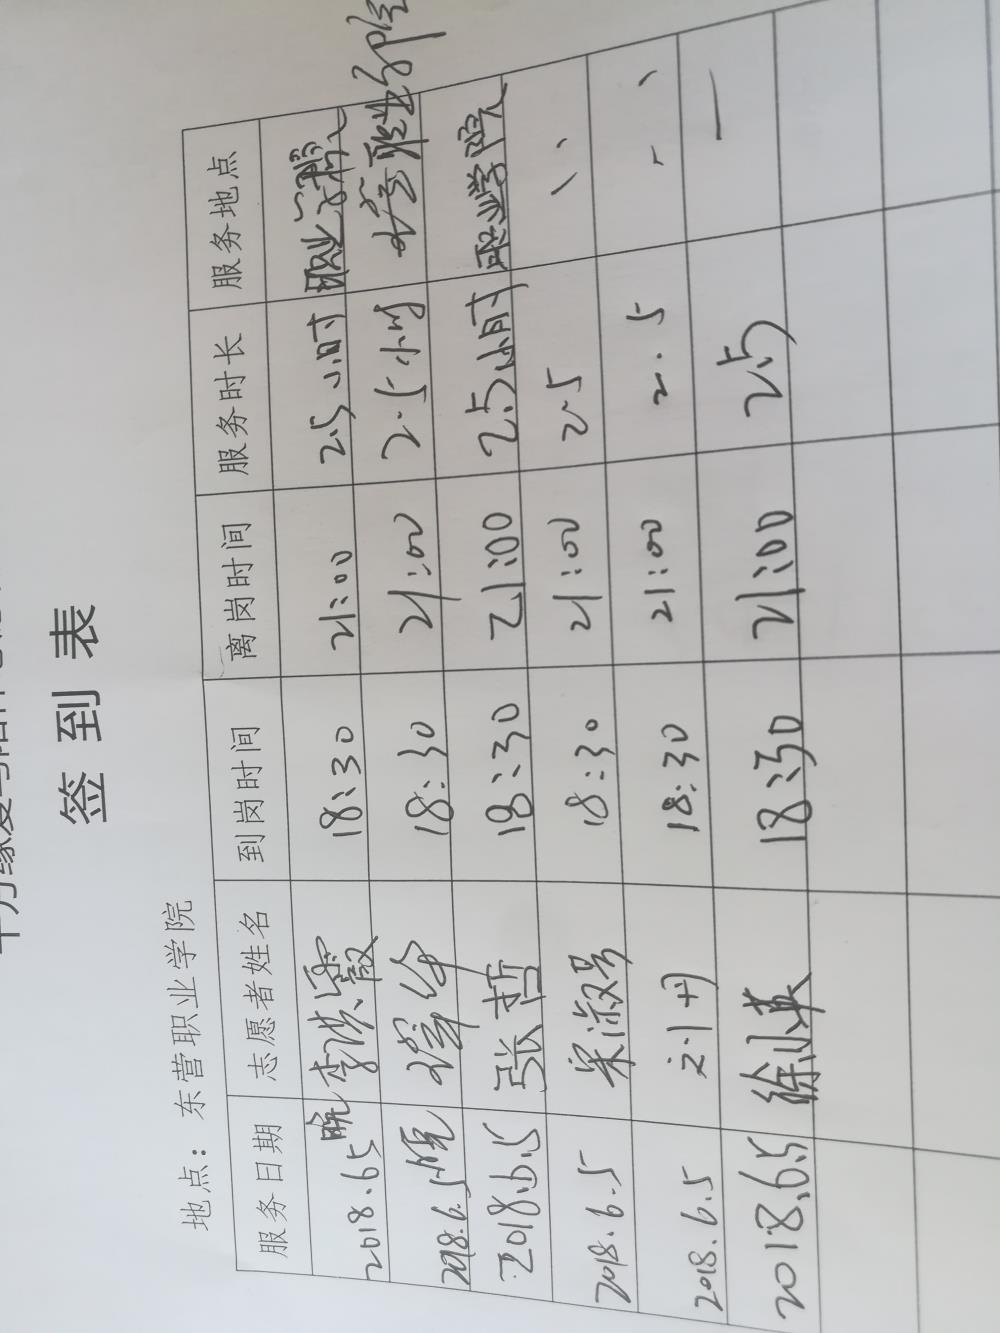 签到表
地点：东营职业学院
服务日期 志愿者姓名 到岗时间 离岗时间 服务时长 服务地点
2018.6.5晚 李洪霞 18:30 21:00 2.5小时 职业学院
2018.6.5晚 18:30 21:00 2.5小时 东营职业学院
2018.6.5 张哲 18:30 21:00 2.5小时 职业学院
2018.6.5 宋淑号 18:30 21:00 2.5 、、
2018.6.5 刘丹 18:30 21:00 2.5 、、
2018.6.5 徐小英 18:30 21:00 2.5 一